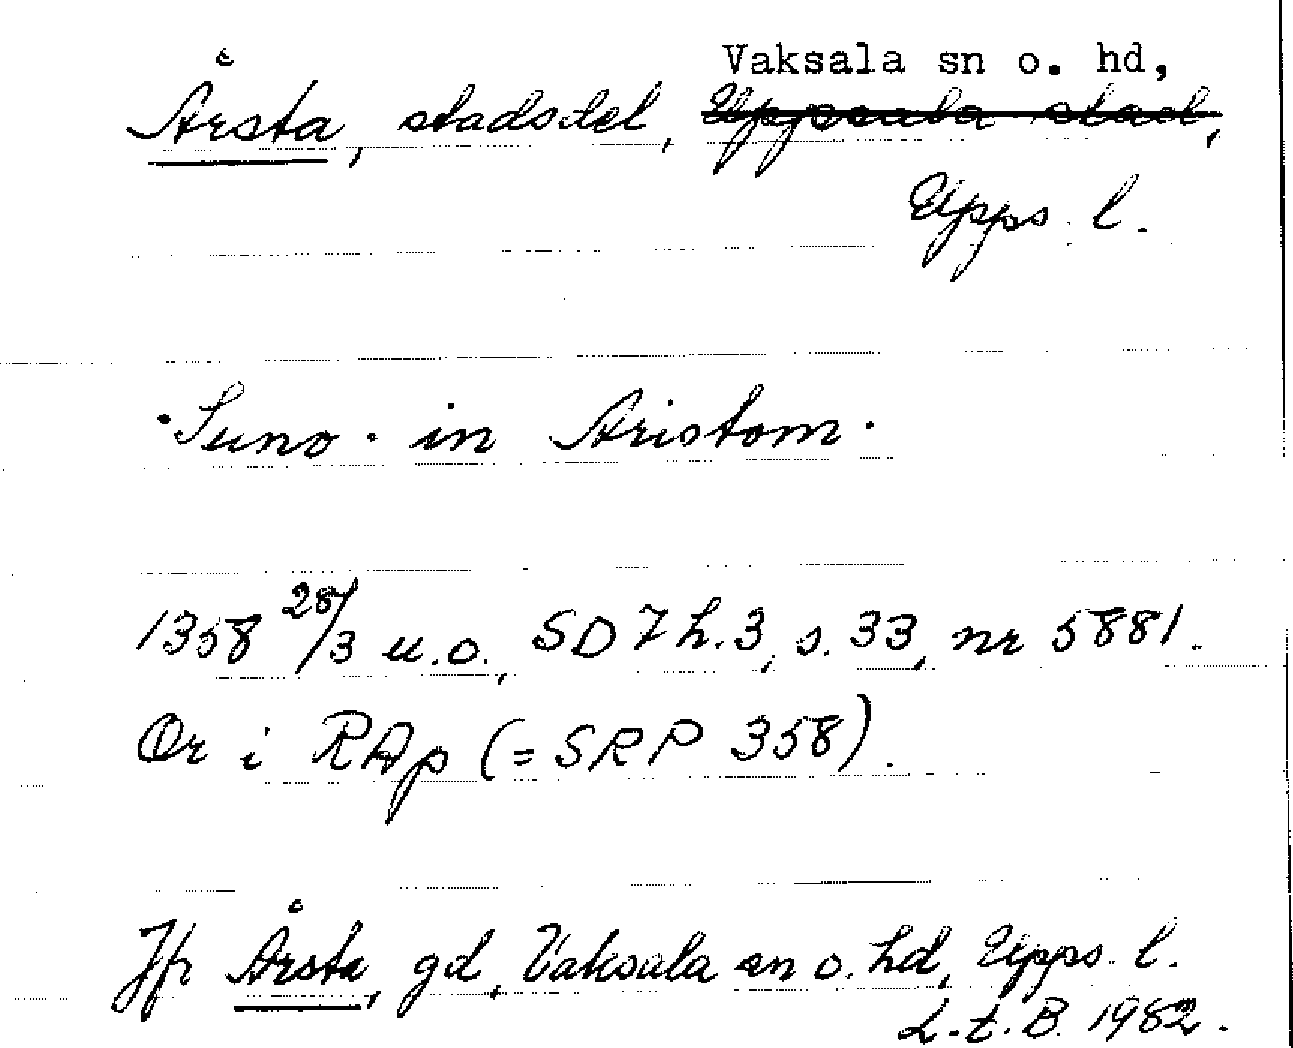 Vaksala sn o. hd,
Årsta, stadsdel, Uppsala stad,
Upps. l.
·Suno· in Aristom·
1358 28/3 u.o., SD 7 h.3, s. 33, nr 5881.
Or i RAp (=SRP 358).
Jfr Årsta, gd, Vaksala sn o. hd, Upps. l.
L.t.B. 1982.